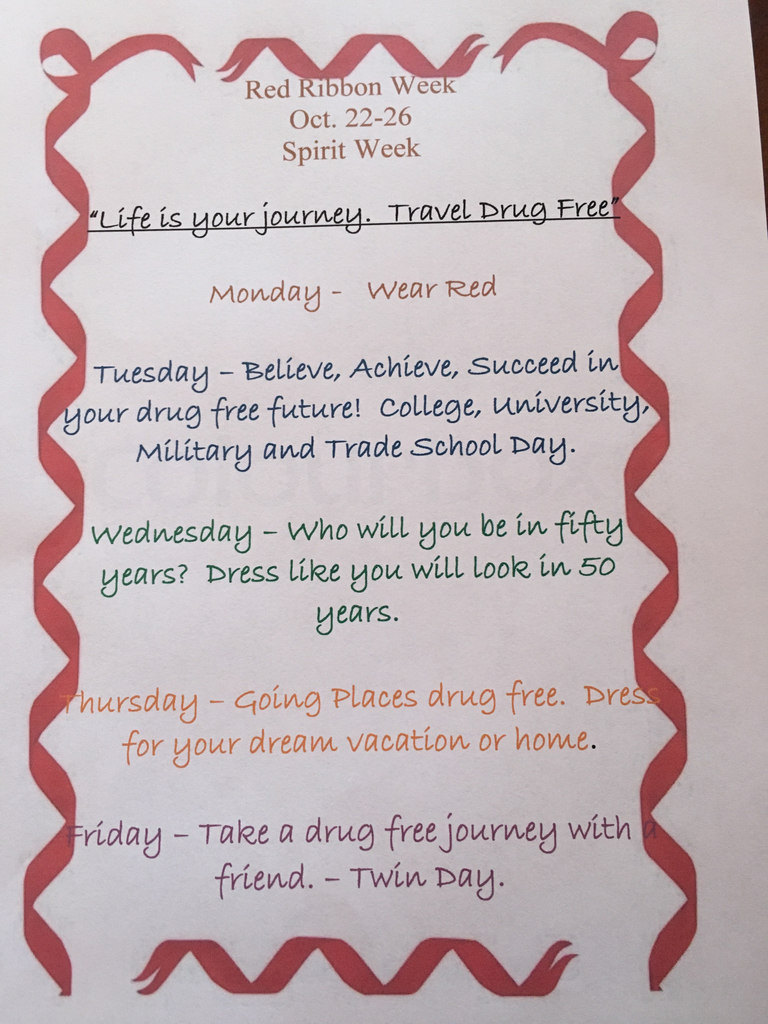 Red Ribbon Week
Oct. 22-26
Spirit Week
“Life is your journey. Travel Drug Free”
Monday - Wear Red
Tuesday – Believe, Achieve, Succeed in
your drug free future! College, University,
Military and Trade School Day.
Wednesday – Who will you be in fifty
years? Dress like you will look in 50
years.
Thursday – Going Places drug free. Dress
for your dream vacation or home.
Friday – Take a drug free journey with a
friend. – Twin Day.